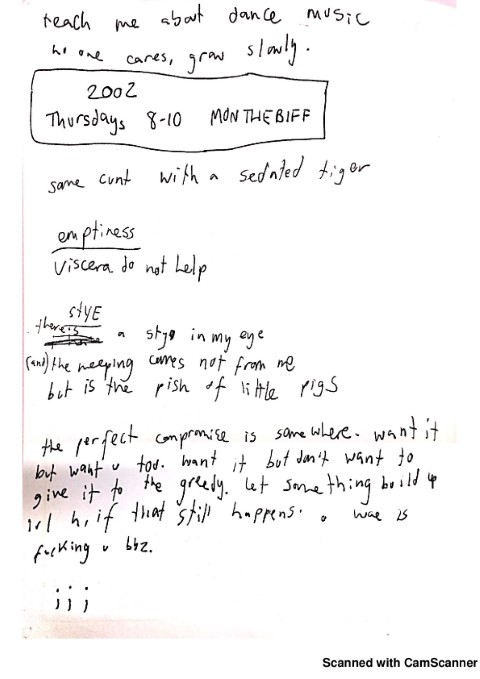 teach me about dance music
no one cares, grow slowly.
2002
Thursdays 8-10 MONTHEBIFF
some cunt with a sedated tiger
emptiness
Viscera do not help
stYE
there is a stye in my eye
(and) the weeping comes not from me
but is the pish of little pigs
the perfect compromise is somewhere. want it
but want u too. want it but don't want to
give it to the greedy. let something build up
irl h, if that still happens. wae is
fucking u bbz.
jjj
Scanned with CamScanner